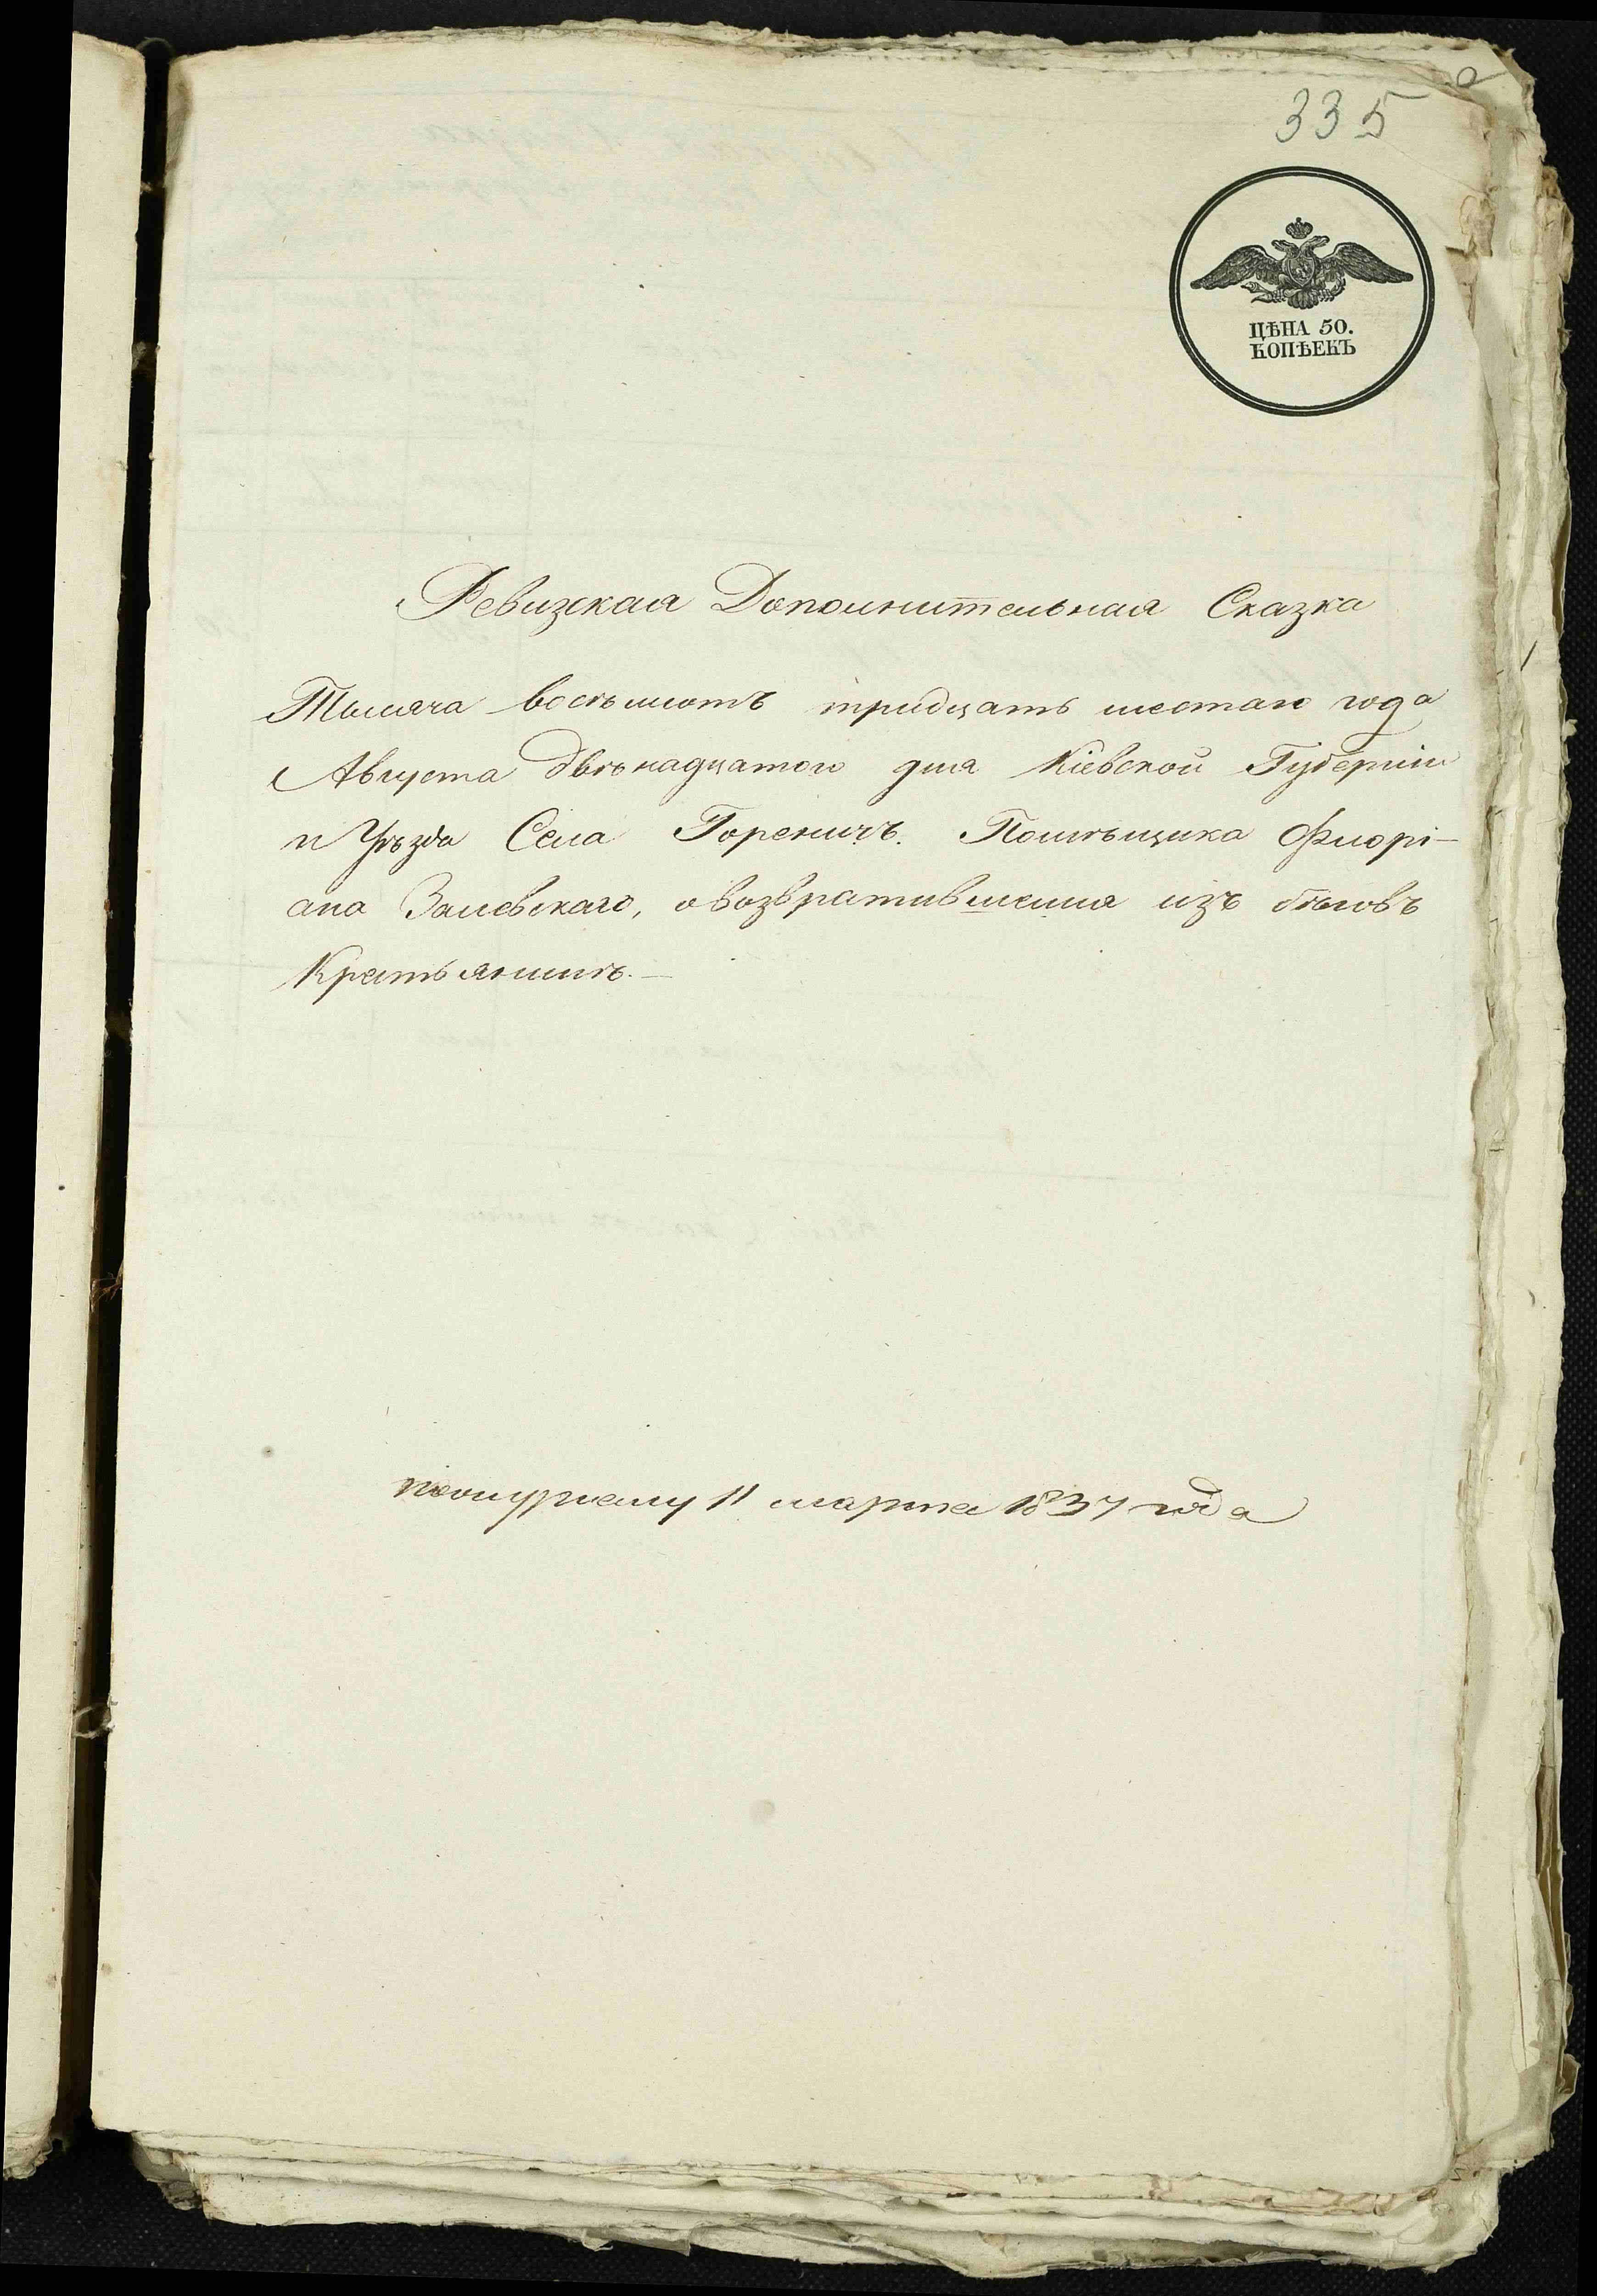 335
ЦѢНА 50.
КОПѢЕКЪ
Ревизская Дополнительная Сказка
Тысяча восемьсотъ тридцать шестаго года
Августа двѣнадцатого дня Кіевской Губерніи
и Уѣзда Села Гореничъ. Помѣщика Флорі-
ана Залевскаго, о возвратившемся изъ бѣговъ
Крестьянинѣ.—
11 марта 1837 года